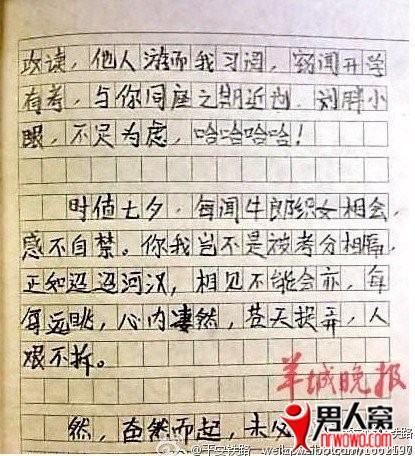 攻读，他人游而我习词，窃闻开学
有考，与你同座之期近，刘胖小
眼，不足为虑，哈哈哈哈！
时值七夕，每闻牛郎织女相会，
感不自禁。你我岂不是被考分相隔，
正如迢迢河汉，相见不能会亦，每
每远眺，心内凄然，苍天捉弄，人
艰不拆。
羊城晚报
然，奋然而起，未
男人窝
nrwowo.com